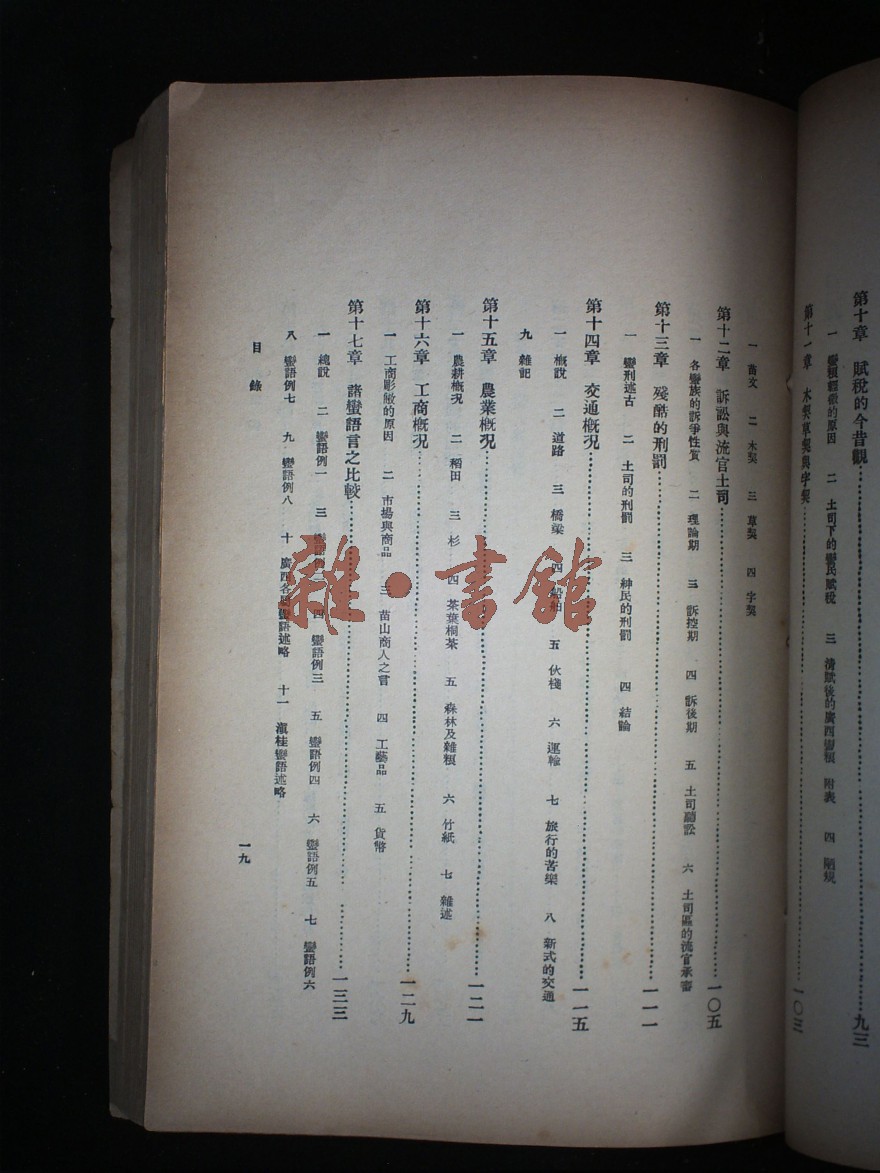 第十章 賦稅的今昔觀……九三
一 蠻糧輕徵的原因 二 土司下的蠻民賦稅 三 清賦後的廣西蠻糧 附表 四 陋規
第十一章 木契草契與字契……一〇三
一 苗文 二 木契 三 草契 四 字契
第十二章 訴訟與流官土司……一〇五
一 各蠻族的訴爭性質 二 理論期 三 訴控期 四 訴後期 五 土司聽訟 六 土司區的流官承審
第十三章 殘酷的刑罰……一一一
一 蠻刑述古 二 土司的刑罰 三 紳民的刑罰 四 結論
第十四章 交通概況……一一五
一 概說 二 道路 三 橋梁 四 船舶 五 伙棧 六 運輸 七 旅行的苦樂 八 新式的交通
九 雜記
第十五章 農業概況……一二一
一 農耕概況 二 稻田 三 杉 四 茶葉桐茶 五 森林及雜糧 六 竹紙 七 雜述
第十六章 工商概況……一二九
一 工商彫敝的原因 二 市場與商品 三 苗山商人之言 四 工藝品 五 貨幣
第十七章 諸蠻語言之比較……一三三
一 總說 二 蠻語例一 三 蠻語例二 四 蠻語例三 五 蠻語例四 六 蠻語例五 七 蠻語例六
八 蠻語例七 九 蠻語例八 十 廣西各屬蠻語述略 十一 滇桂蠻語述略
目錄
一九
雜·書館